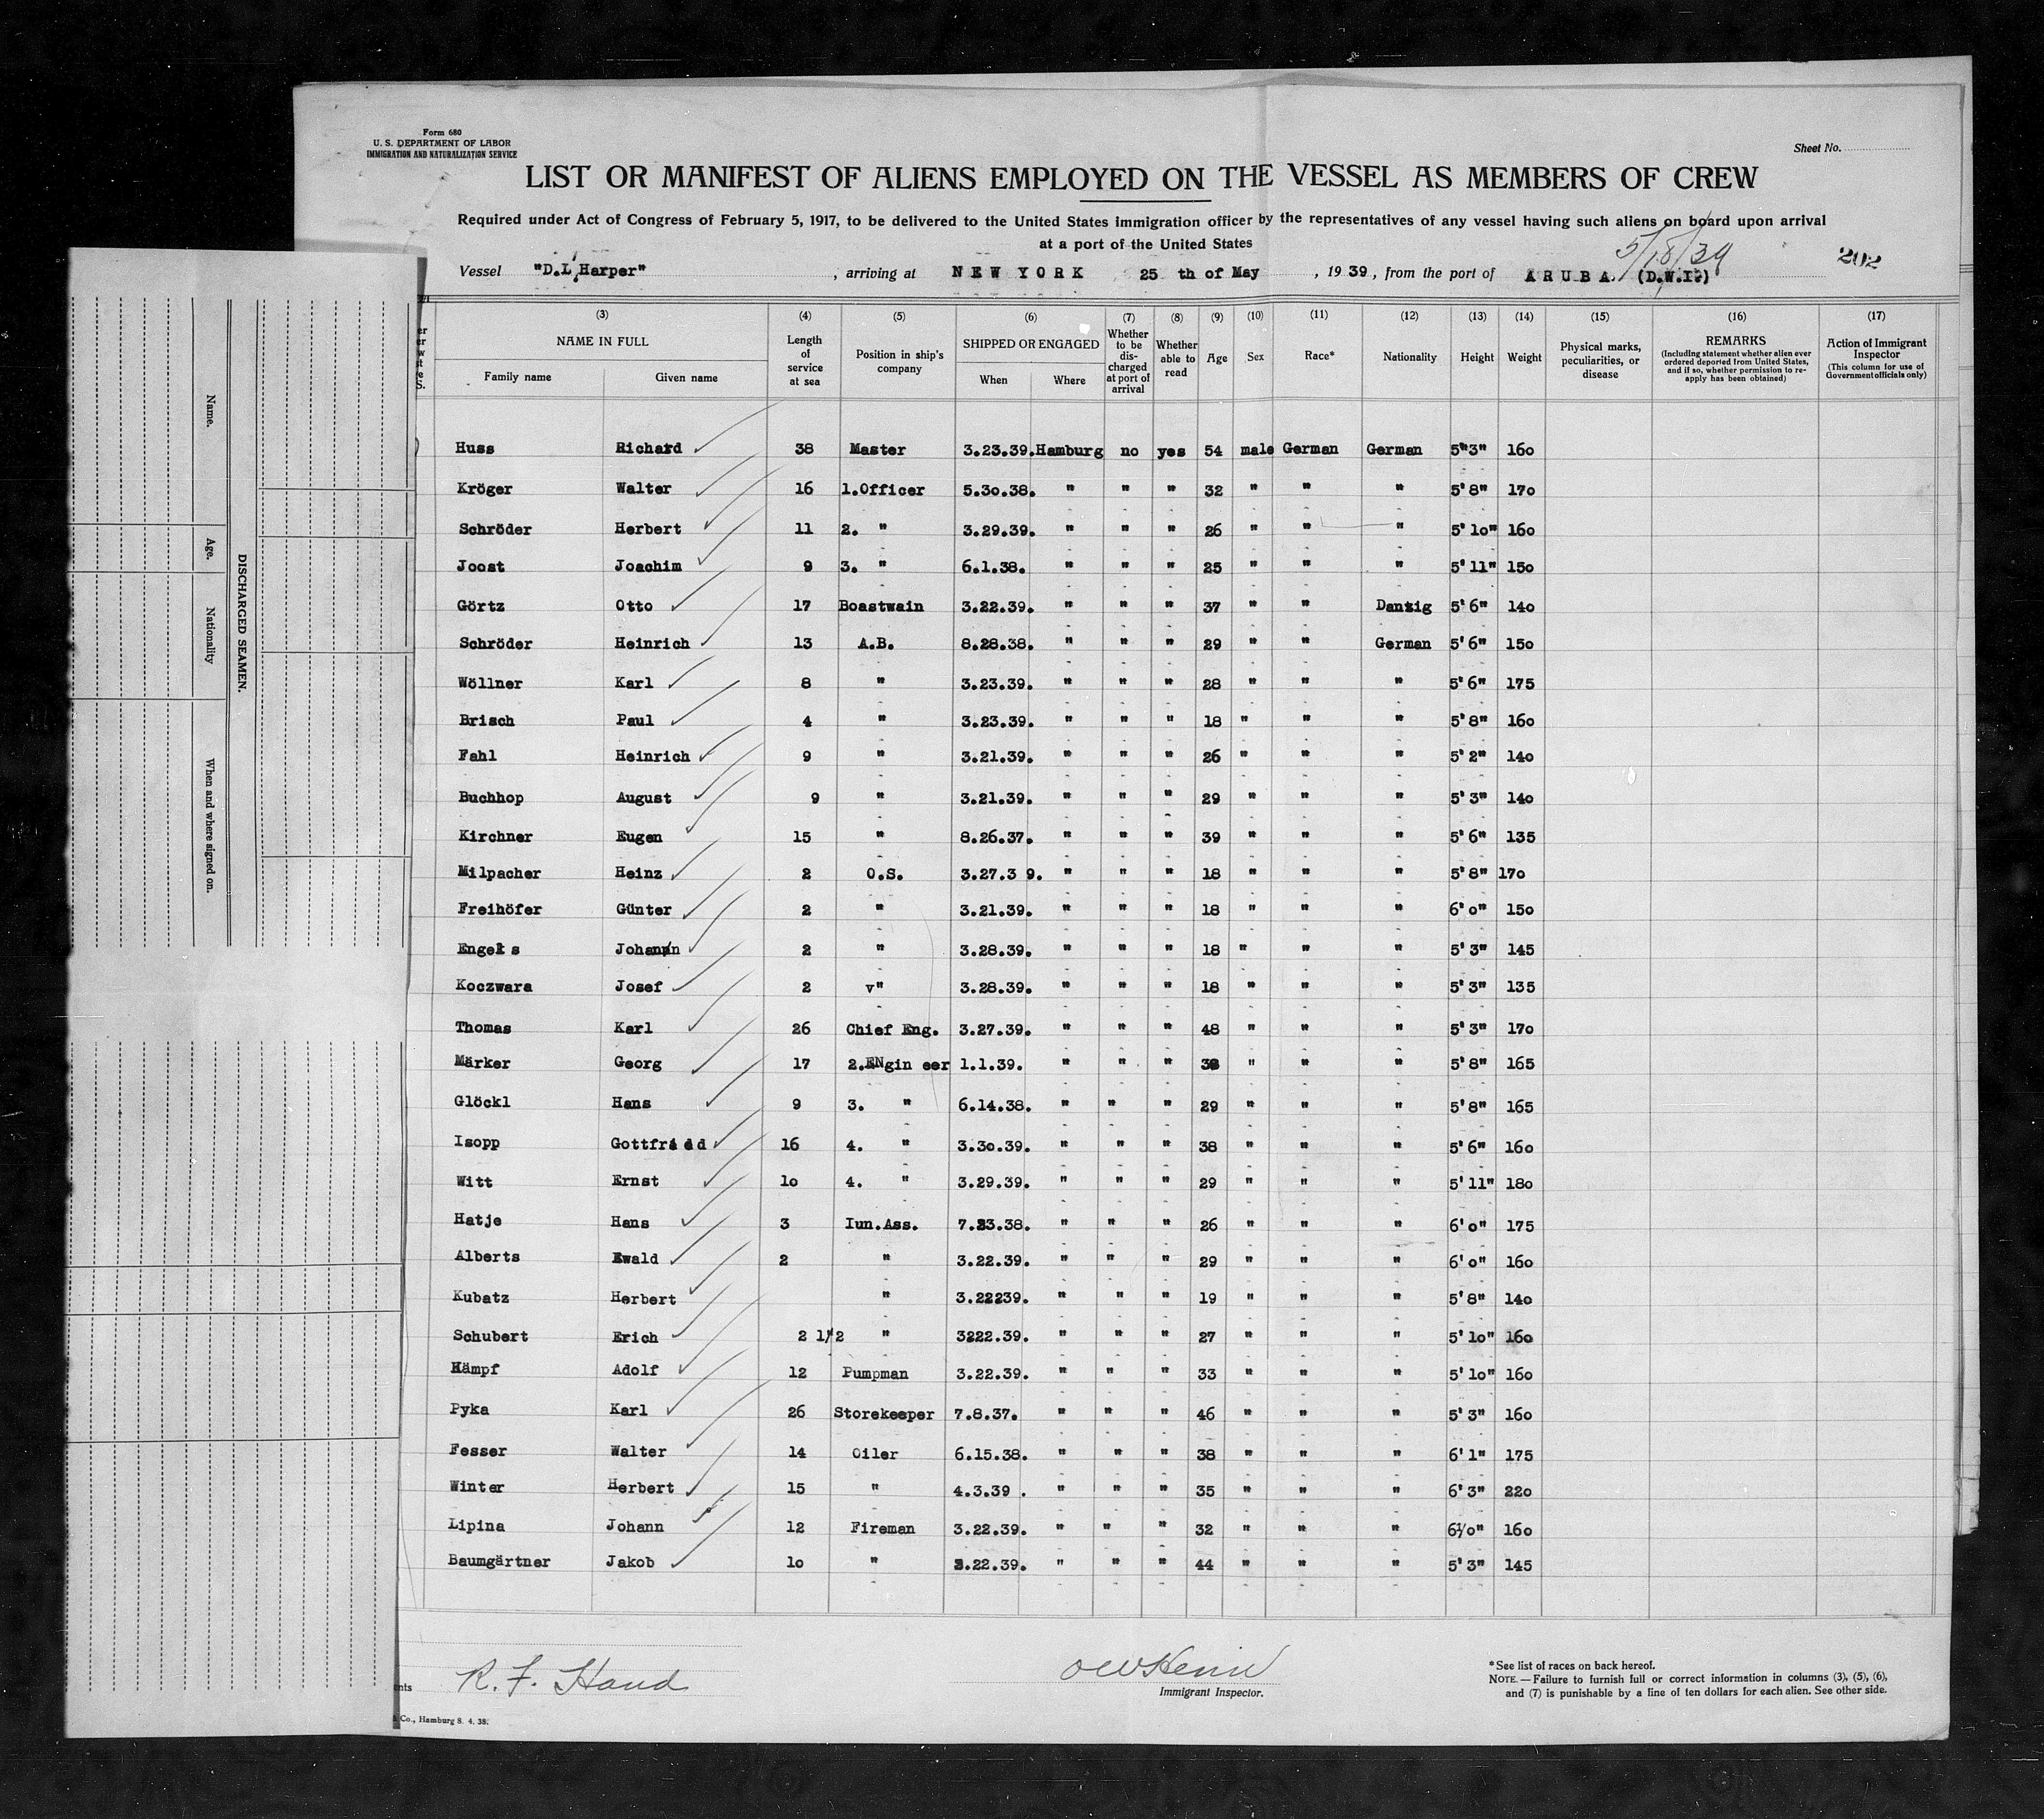 Form 680
U. S. DEPARTMENT OF LABOR
IMMIGRATION AND NATURALIZATION SERVICE
Sheet No.
LIST OR MANIFEST OF ALIENS EMPLOYED ON THE VESSEL AS MEMBERS OF CREW
Required under Act of Congress of February 5, 1917, to be delivered to the United States immigration officer by the representatives of any vessel having such aliens on board upon arrival
at a port of the United States
5/18/39
Vessel "D.L.Harper" , arriving at NEW YORK 25 th of May , 1939, from the port of ARUBA. (D.W.I.) 202
(3) (4) (5) (6) (7) (8) (9) (10) (11) (12) (13) (14) (15) (16) (17)
NAME IN FULL Length of service at sea Position in ship's company SHIPPED OR ENGAGED Whether to be discharged at port of arrival Whether able to read Age Sex Race* Nationality Height Weight Physical marks, peculiarities, or disease REMARKS (Including statement whether alien ever ordered deported from United States, and if so, whether permission to reapply has been obtained) Action of Immigrant Inspector (This column for use of Government officials only)
Family name Given name When Where
Huss Richard 38 Master 3.23.39. Hamburg no yes 54 male German German 5'3" 160
Kröger Walter 16 1.Officer 5.30.38. " " " 32 " " " 5'8" 170
Schröder Herbert 11 2. " 3.29.39. " " " 26 " " " 5'10" 160
Joost Joachim 9 3. " 6.1.38. " " " 25 " " " 5'11" 150
Görtz Otto 17 Boastwain 3.22.39. " " " 37 " " Danzig 5'6" 140
Schröder Heinrich 13 A.B. 8.28.38. " " " 29 " " German 5'6" 150
Wöllner Karl 8 " 3.23.39. " " " 28 " " " 5'6" 175
Brisch Paul 4 " 3.23.39. " " " 18 " " " 5'8" 160
Fahl Heinrich 9 " 3.21.39. " " " 26 " " " 5'2" 140
Buchhop August 9 " 3.21.39. " " " 29 " " " 5'3" 140
Kirchner Eugen 15 " 8.26.37. " " " 39 " " " 5'6" 135
Milpacher Heinz 2 O.S. 3.27.3 9. " " " 18 " " " 5'8" 170
Freihöfer Günter 2 " 3.21.39. " " " 18 " " " 6'0" 150
Engels Johann 2 " 3.28.39. " " " 18 " " " 5'3" 145
Koczwara Josef 2 v" 3.28.39. " " " 18 " " " 5'3" 135
Thomas Karl 26 Chief Eng. 3.27.39. " " " 48 " " " 5'3" 170
Märker Georg 17 2.ENgin eer 1.1.39. " " " " " " 5'8" 165
Glöckl Hans 9 3. " 6.14.38. " " " 29 " " " 5'8" 165
Isopp Gottfried 16 4. " 3.30.39. " " " 38 " " " 5'6" 160
Witt Ernst 10 4. " 3.29.39. " " " 29 " " " 5'11" 180
Hatje Hans 3 Iun.Ass. 7.23.38. " " " 26 " " " 6'0" 175
Alberts Ewald 2 " 3.22.39. " " " 29 " " " 6'0" 160
Kubatz Herbert " 3.22239. " " " 19 " " " 5'8" 140
Schubert Erich 2 1/2 " 3222.39. " " " 27 " " " 5'10" 160
Kämpf Adolf 12 Pumpman 3.22.39. " " " 33 " " " 5'10" 160
Pyka Karl 26 Storekeeper 7.8.37. " " " 46 " " " 5'3" 160
Fesser Walter 14 Oiler 6.15.38. " " " 38 " " " 6'1" 175
Winter Herbert 15 " 4.3.39 . " " " 35 " " " 6'3" 220
Lipina Johann 12 Fireman 3.22.39. " " " 32 " " " 6'0" 160
Baumgärtner Jakob 10 " 3.22.39. " " " 44 " " " 5'3" 145
R. F. Hand
Immigrant Inspector.
*See list of races on back hereof.
NOTE.—Failure to furnish full or correct information in columns (3), (5), (6),
and (7) is punishable by a line of ten dollars for each alien. See other side.
Co., Hamburg 8. 4. 38.
DISCHARGED SEAMEN.
Name.
Age.
Nationality
When and where signed on.